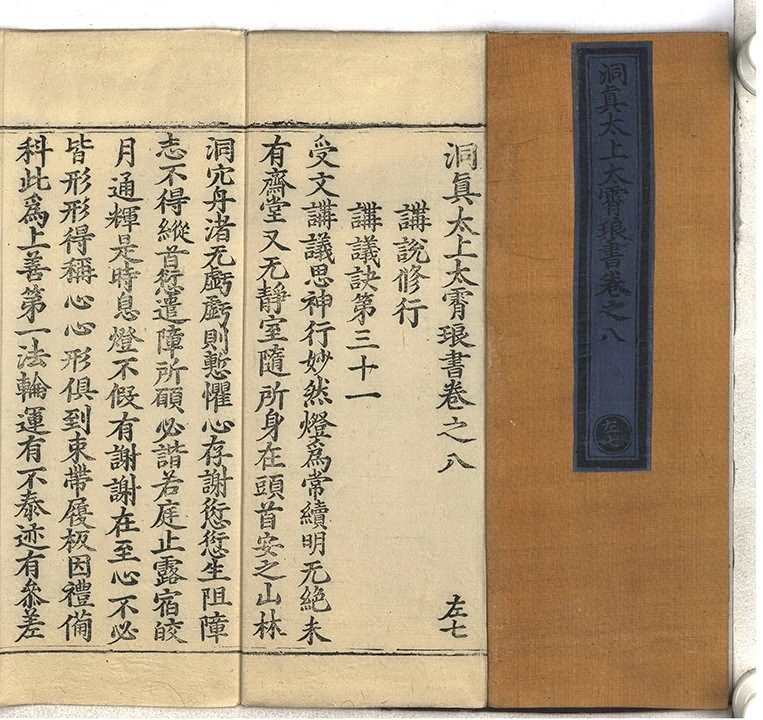 洞真太上太霄琅書卷之八
左七
洞真太上太霄琅書卷之八
左七
講說修行
講議訣第三十一
受文講議思神行妙然燈為常續明无絕未
有齋堂又无靜室隨所身在頭首安之山林
洞穴丹渚无虧虧則慙懼心存謝愆愆生阻障
志不得縱首愆遣障所願必諧若庭止露宿皎
月通輝是時息燈不假有謝謝在至心不必
皆形形得稱心心形俱到束帶履板因禮備
科此為上善第一法輪運有不泰迹有參差